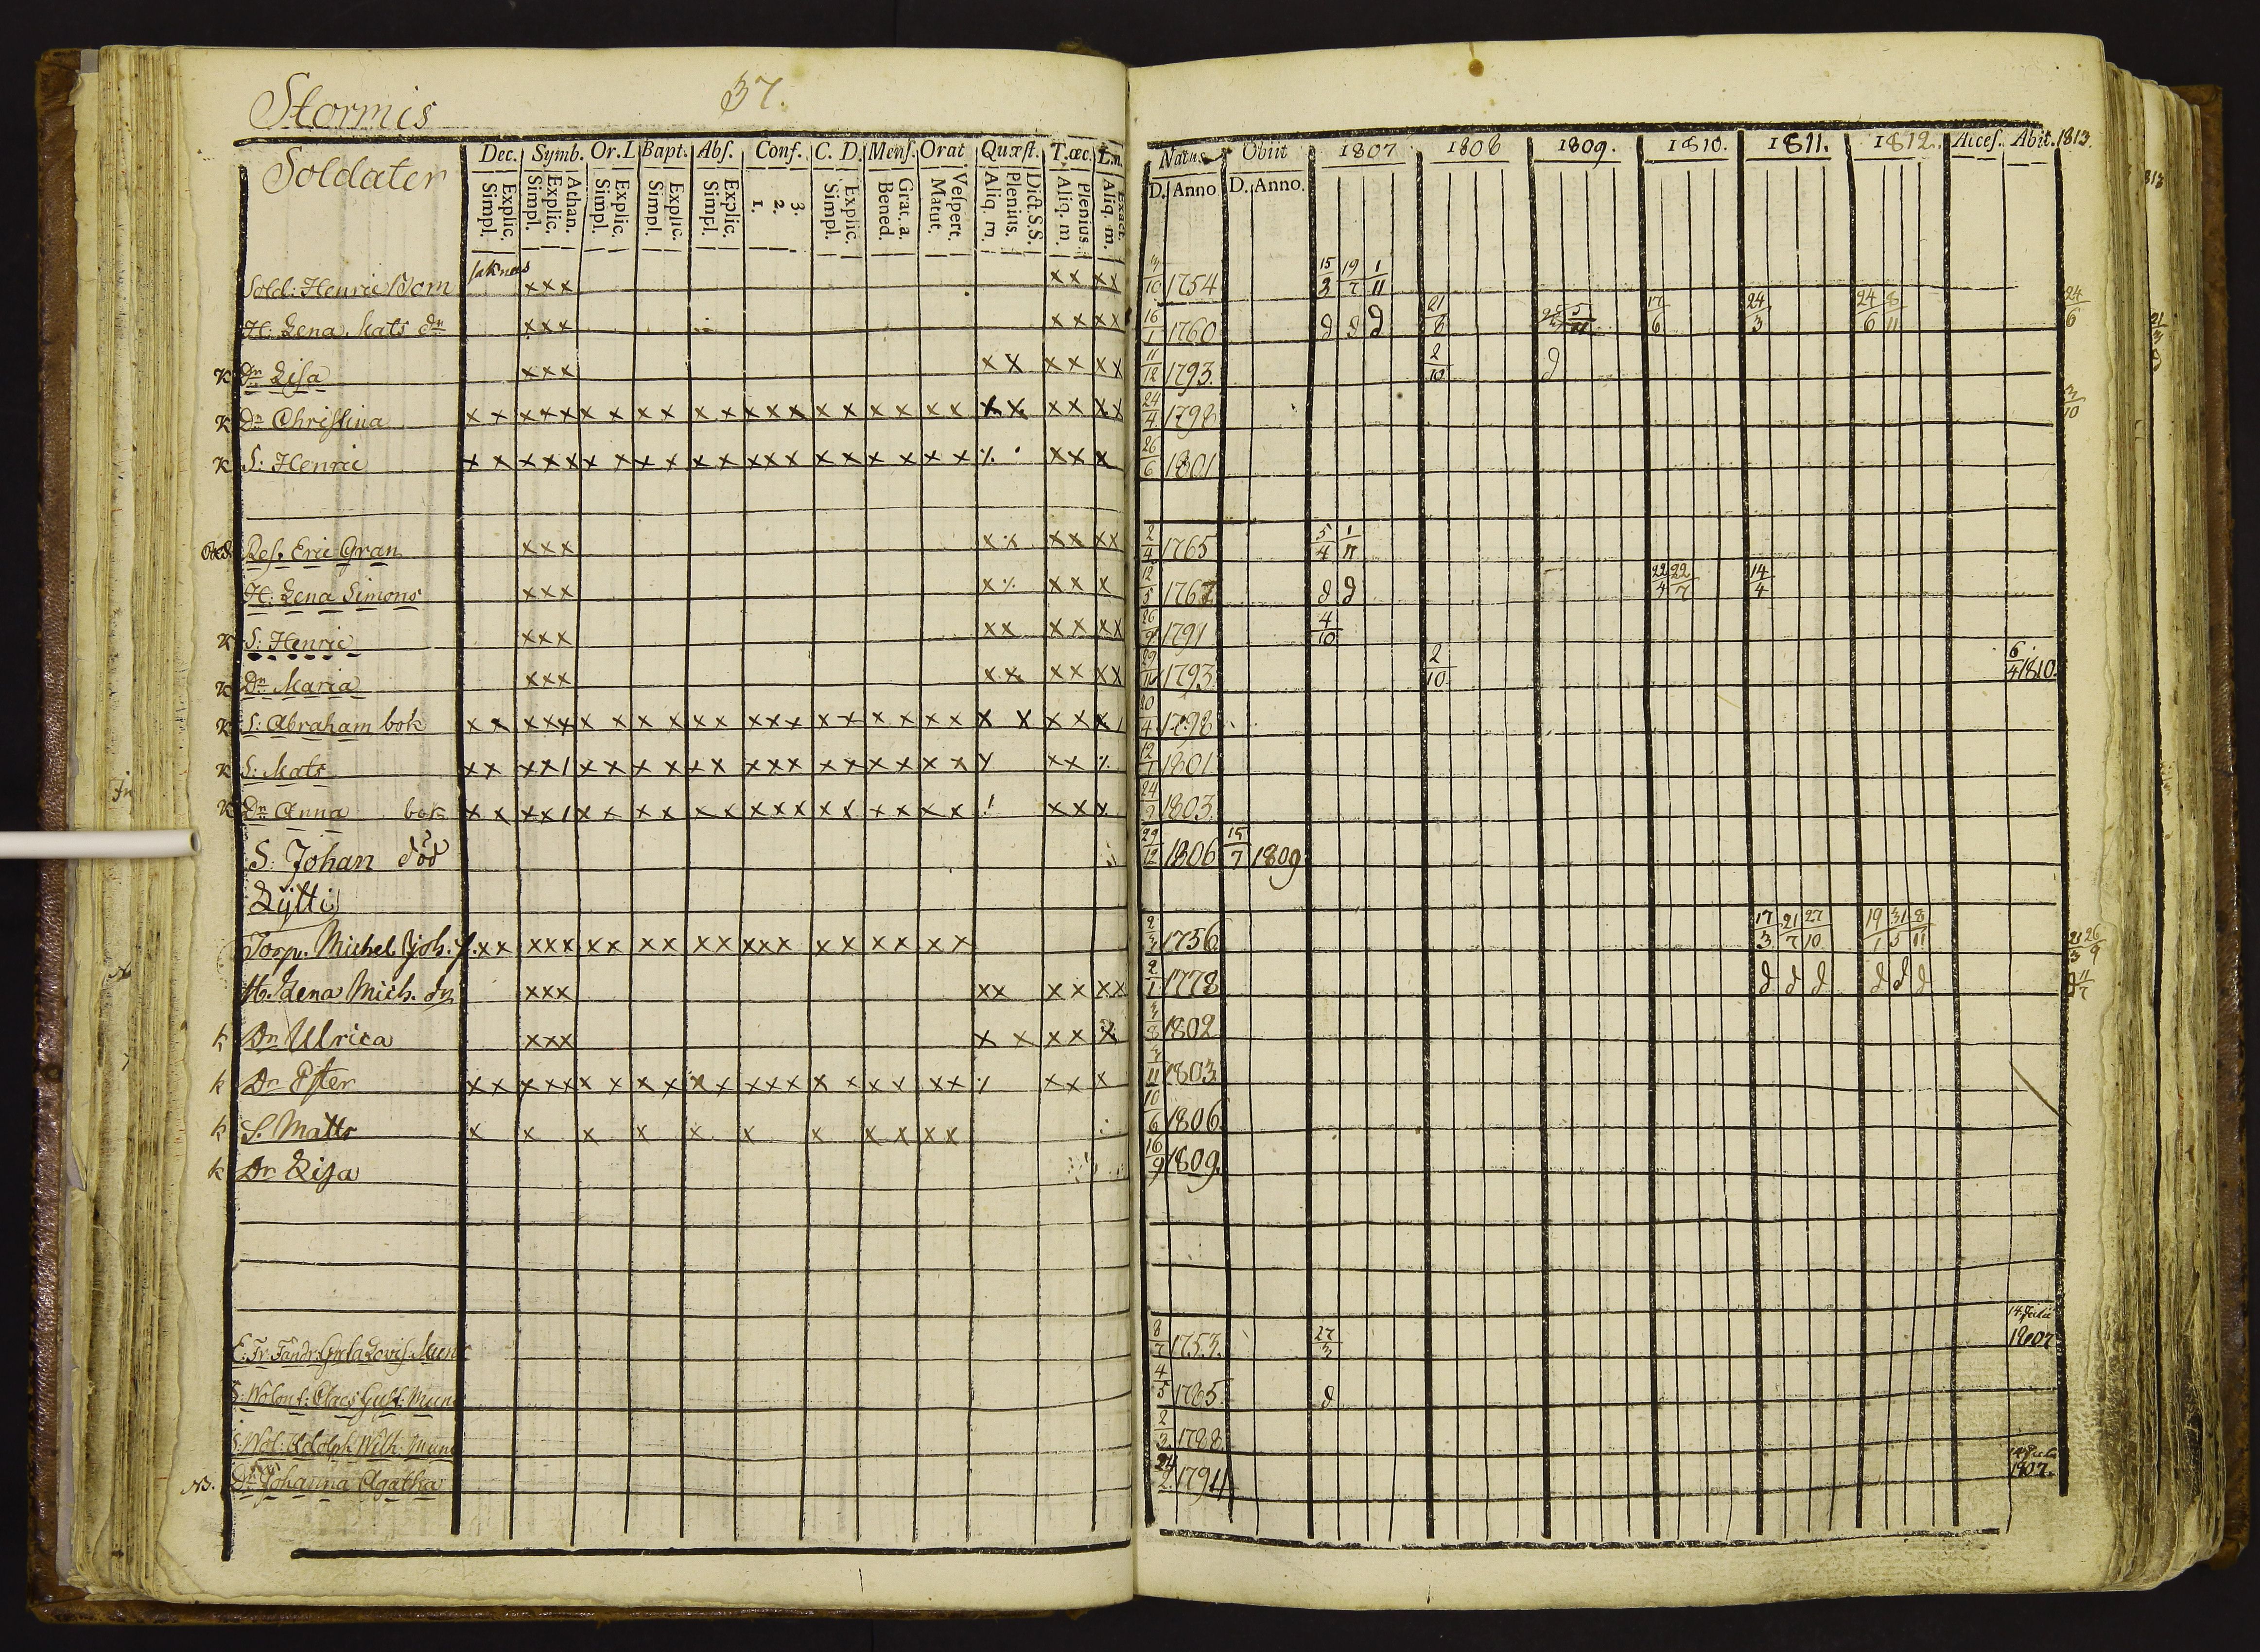 Stormis
37.
Soldater
Dec. Symb. Or. L Bapt. Abs. Conf. C. D. Mens. Orat Quæst. T. œc. L.n.
Explic. Simpl. Athan. Explic. Simpl. Explic. Simpl. Explic. Simpl. Explic. Simpl. 3. 2. 1. Explic. Simpl. Grat. a. Bened. Vespert. Matut. Dict. S.S. Plenius. Aliq. m. Plenius. Aliq. m. Exact. Aliq. m.
Natus Obiit 1807 1808 1809. 1810. 1811. 1812. Acces. Abit. 1813.
D. Anno D. Anno.
saknas
Sold: Henric xxx xx xx 3/10 1754 15/3 19/7 1/11
H: Lena Mats dr xxx xx xx 16/1 1760 d d d 21/8 17/6 24/3 24/6 8/11 24/6
K Dr Lisa xxx x x x x x x 11/12 1793. 2/10 d
K Dr Christina x x x x x x x x x x x x x x x x x x x x x x x x x x x 24/4 1798 3/10
K S: Henric x x x x x x x x x x x x x x x x x x x x ⁒ x x x 26/6 1801
Ref. Eric Gran xxx x x x x x x 2/4 1765 5/4 1/11
H: Lena Simons xxx x ⁒ x x x 12/5 1767 d d 22/4 22/7 14/4
K S: Henric xxx x x x x x x 26/9 1791 4/10
K Dr Maria xxx x x x x x x 29/11 1793 2/10 6/4 1810.
K S: Abraham bok x x x x x x x x x x x x x x x x x x x x x x x x x 20/4 1798
K S: Mats x x x x / x x x x x x x x x x x x x x x x x ⁒ 12/7 1801
K Dr Anna bok x x x x / x x x x x x x x x x x x x x x x x x 24/9 1803.
S: Johan död 29/12 1806 15/7 1809
Lytti
Torp. Michel Joh. s. xx xxx xx xx xx xxx xx xx xx 2/3 1756 17/3 21/7 27/10 19/1 31/5 8/11 21/3 26/9
H. Lena Mich. dr xxx xx x x x x 2/1 1778 d d d d d d d 11/7
k Dr Ulrica xxx x x x x x 3/8 1802
k Dr Ester x x x x x x x x x x x x x x x x x x x x ⁒ x x x 3/11 1803
k S. Matts x x x x x x x x x x x 10/6 1806.
k Dr Lisa 16/9 1809.
E: Fr: Fändr: Greta Lovis. Munc 8/7 1753. 27/3 14 Julii 1807
S: Wolont: Claes Gust: Munc 4/5 1785. d
S: Wol: Adolph Wilh: Munc 2/3 1788.
NB. Dr Johanna Agatha 24/2 1794 1807.